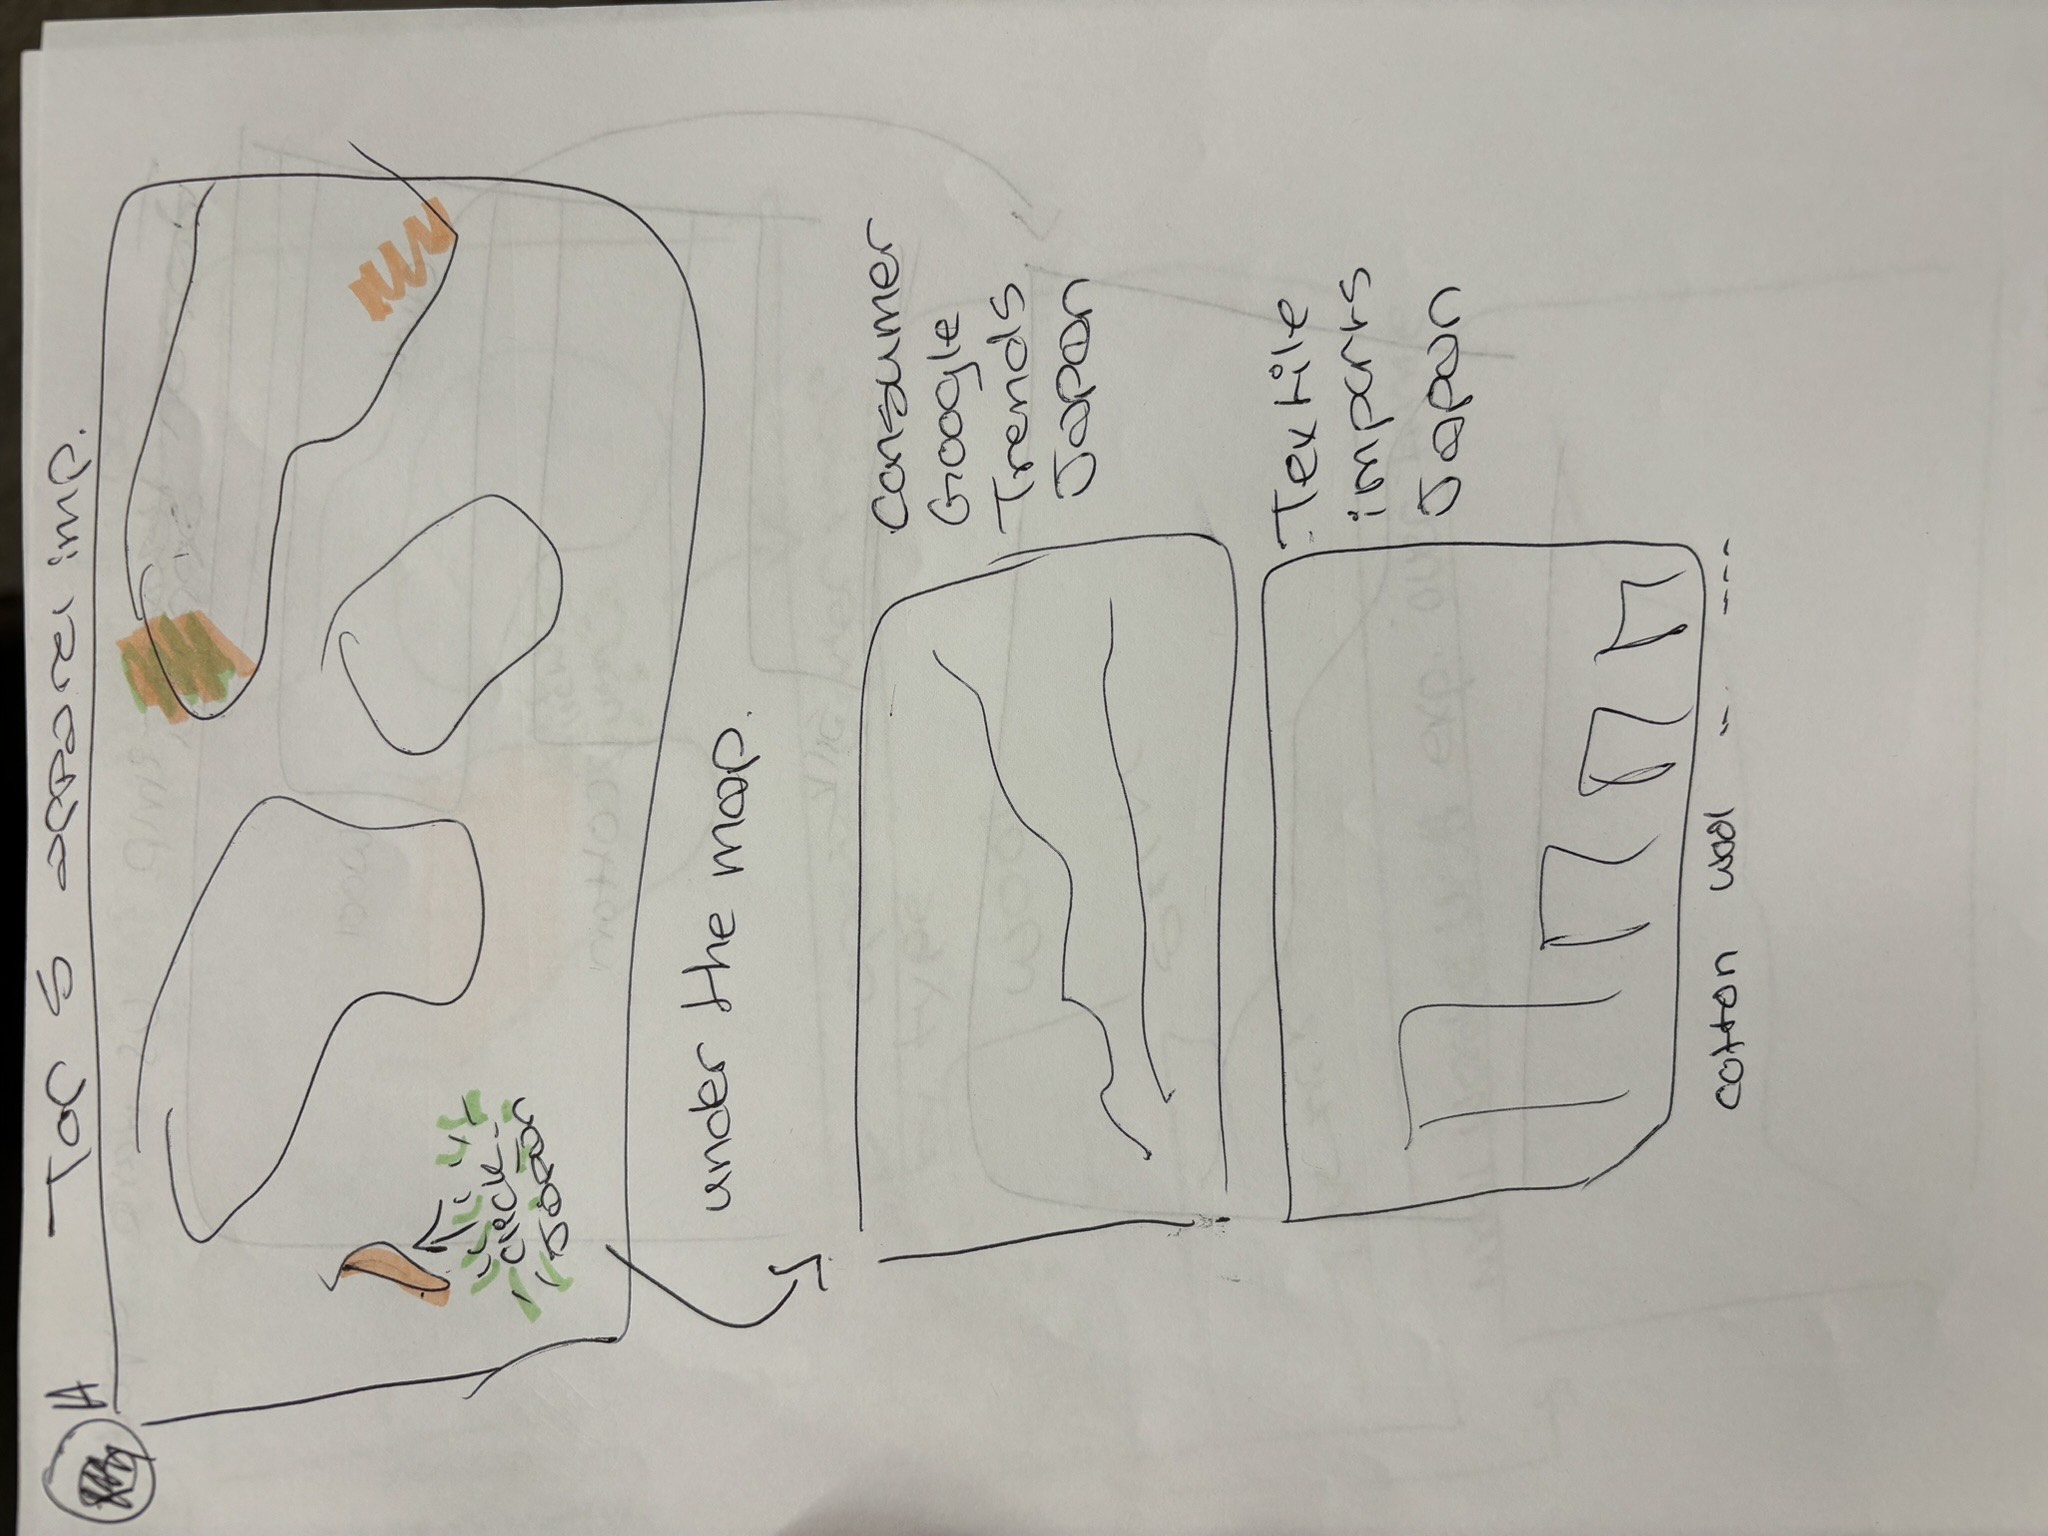 Top 5 apparel imp.
click
Japan
under the map.
Consumer
Google
Trends
Japan
Textile
imports
Japan
cotton wool